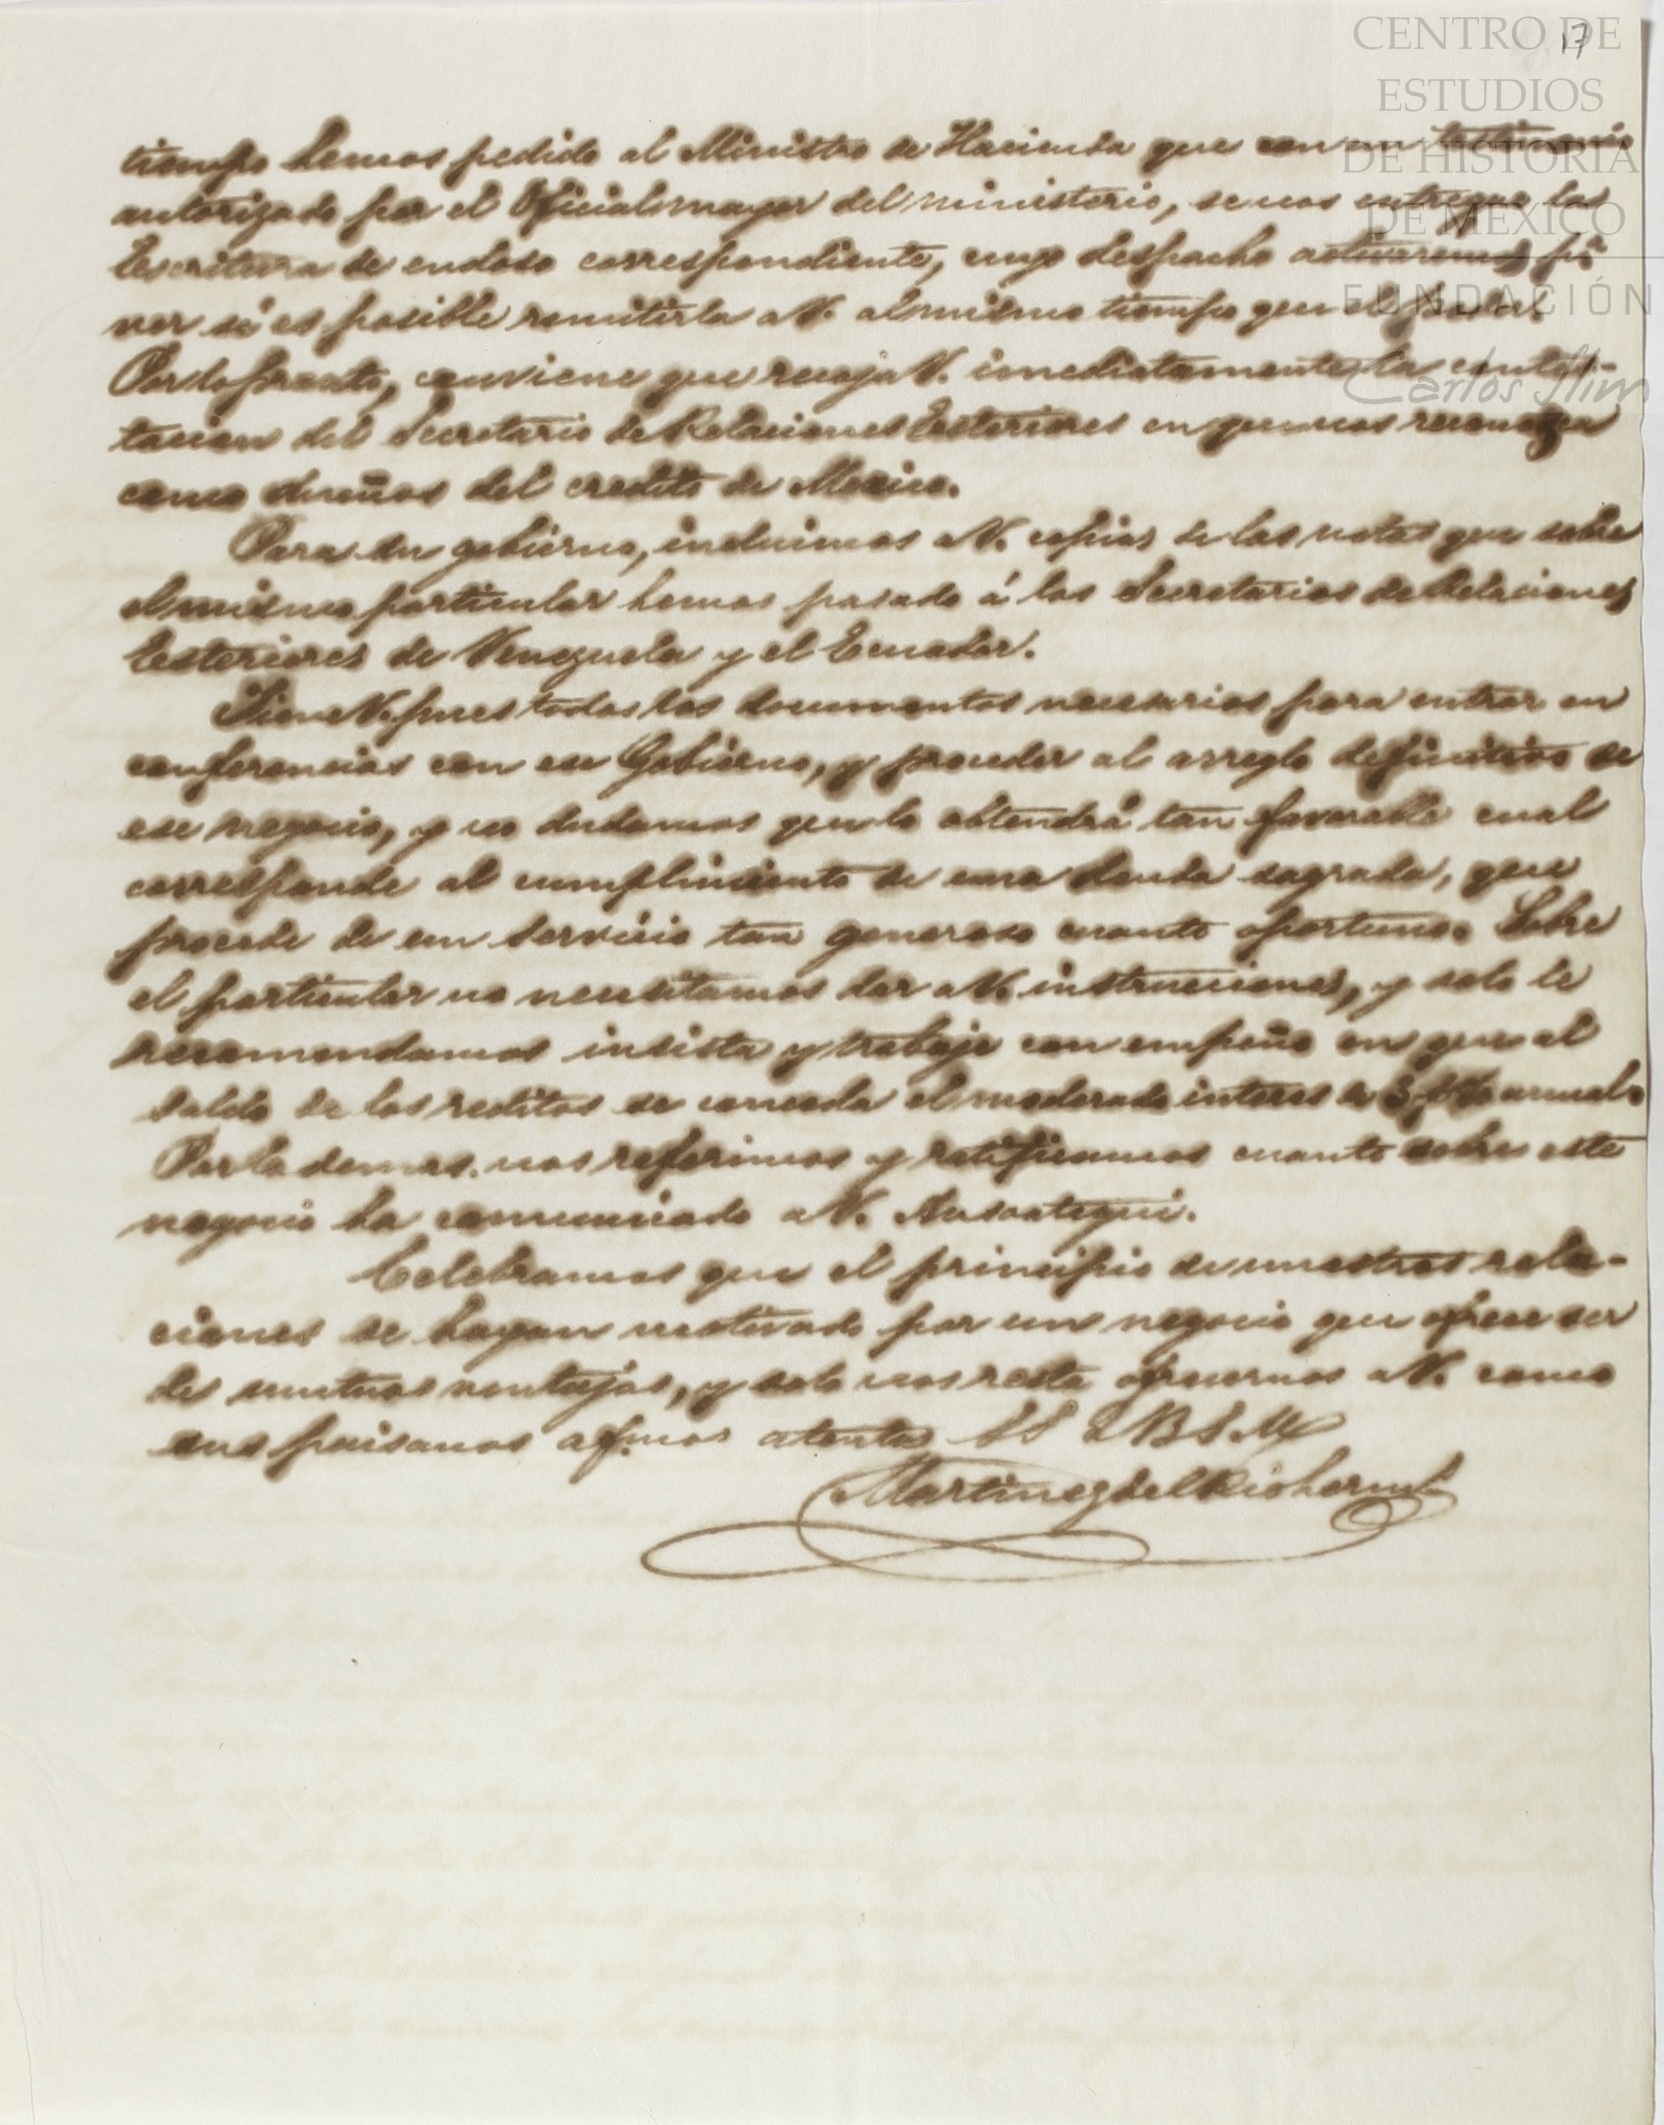 17
CENTRO DE
ESTUDIOS
DE HISTORIA
DE MÉXICO
FUNDACIÓN
Carlos Slim
tiempo hemos pedido al Ministro de Hacienda que con un testimonio
autorizado por el Oficial mayor del ministerio, se nos entregue la
Escritura de endoso correspondiente, cuyo despacho activaremos pa
ver si es posible remitirla a V. al mismo tiempo que el poder.
Por lo pronto, conviene que recoja V. inmediatamente la contes-
tacion del Secretario de Relaciones Esteriores en que nos reconozca
como dueños del credito de Mexico.
Para su gobierno, incluimos a V. copias de las notas que sobre
el mismo particular hemos pasado á los Secretarios de Relaciones
Esteriores de Venezuela y el Ecuador.
Tiene V. pues todos los documentos necesarios para entrar en
conferencias con ese Gobierno, y proceder al arreglo definitivo de
ese negocio, y no dudamos que lo obtendrá tan favorable cual
corresponde al cumplimiento de una deuda sagrada, que
procede de un servicio tan generoso cuanto oportuno. Sobre
el particular no necesitamos dar a V. instrucciones, y solo le
recomendamos insista y trabaje con empeño en que al
saldo de los reditos se conceda el moderado interes de 3 p% anual.
Por lo demas, nos referimos y ratificamos cuanto sobre este
negocio ha comunicado a V. Ansoategui.
Celebramos que el principio de nuestras rela-
ciones se hayan motivado por un negocio que ofrece ser
de mutuas ventajas, y solo nos resta ofrecernos a V. como
sus paisanos afmos atentos SS Q B S M
Martinez del Rio herms